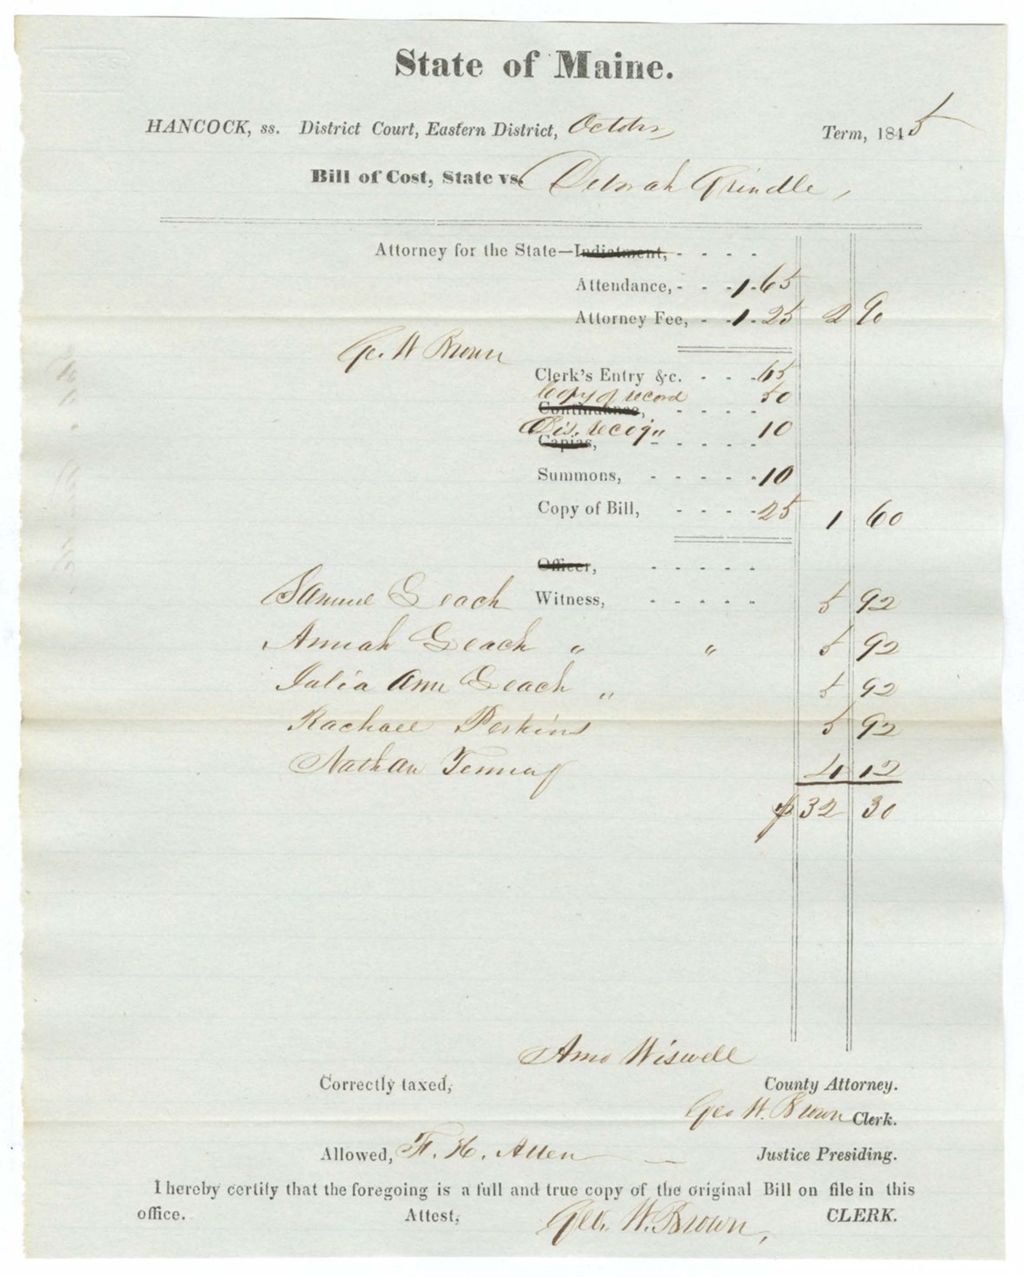 State of Maine.
HANCOCK, ss. District Court, Eastern District, October Term, 1845
Bill of Cost, State vs. Deborah Grindle,
Attorney for the State—Indictment, - - - -
Attendance, - - - 1.65
Attorney Fee, - - 1.25 2 90
Geo. W Brown
Clerk's Entry &c. - - - .65
Copy of record 50
Continuance, - - - -
Dis. recog" 10
Capias, - - - -
Summons, - - - - .10
Copy of Bill, - - - .25 1 60
Officer, - - - - -
Samuel Leach Witness, - - - - - 5 92
Leach " " 5 92
Julia Ann Leach " 5 92
Rachael Perkins 5 92
Nathan Tenney 4 12
$ 32 30
Wiswell
Correctly taxed, County Attorney.
Geo W. Brown Clerk.
Allowed, F. H. Allen Justice Presiding.
I hereby certify that the foregoing is a full and true copy of the original Bill on file in this
office. Attest, Geo. W. Brown, CLERK.